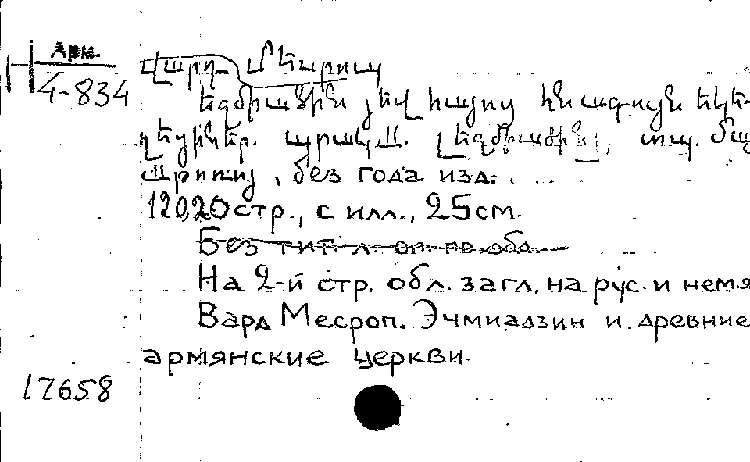 Арм.
4-834
Վարդ Մեսրոպ
Էջմիածին եվ հայոց հնագույն եկե-
ղեցիներ.
, без года изд.
120,20 стр., с илл., 25 см.
Без тит. л. оп. по обл.
На 2-й стр. обл. загл. на рус. и немя
Вард Месроп. Эчмиадзин и древние
армянские церкви.
17658